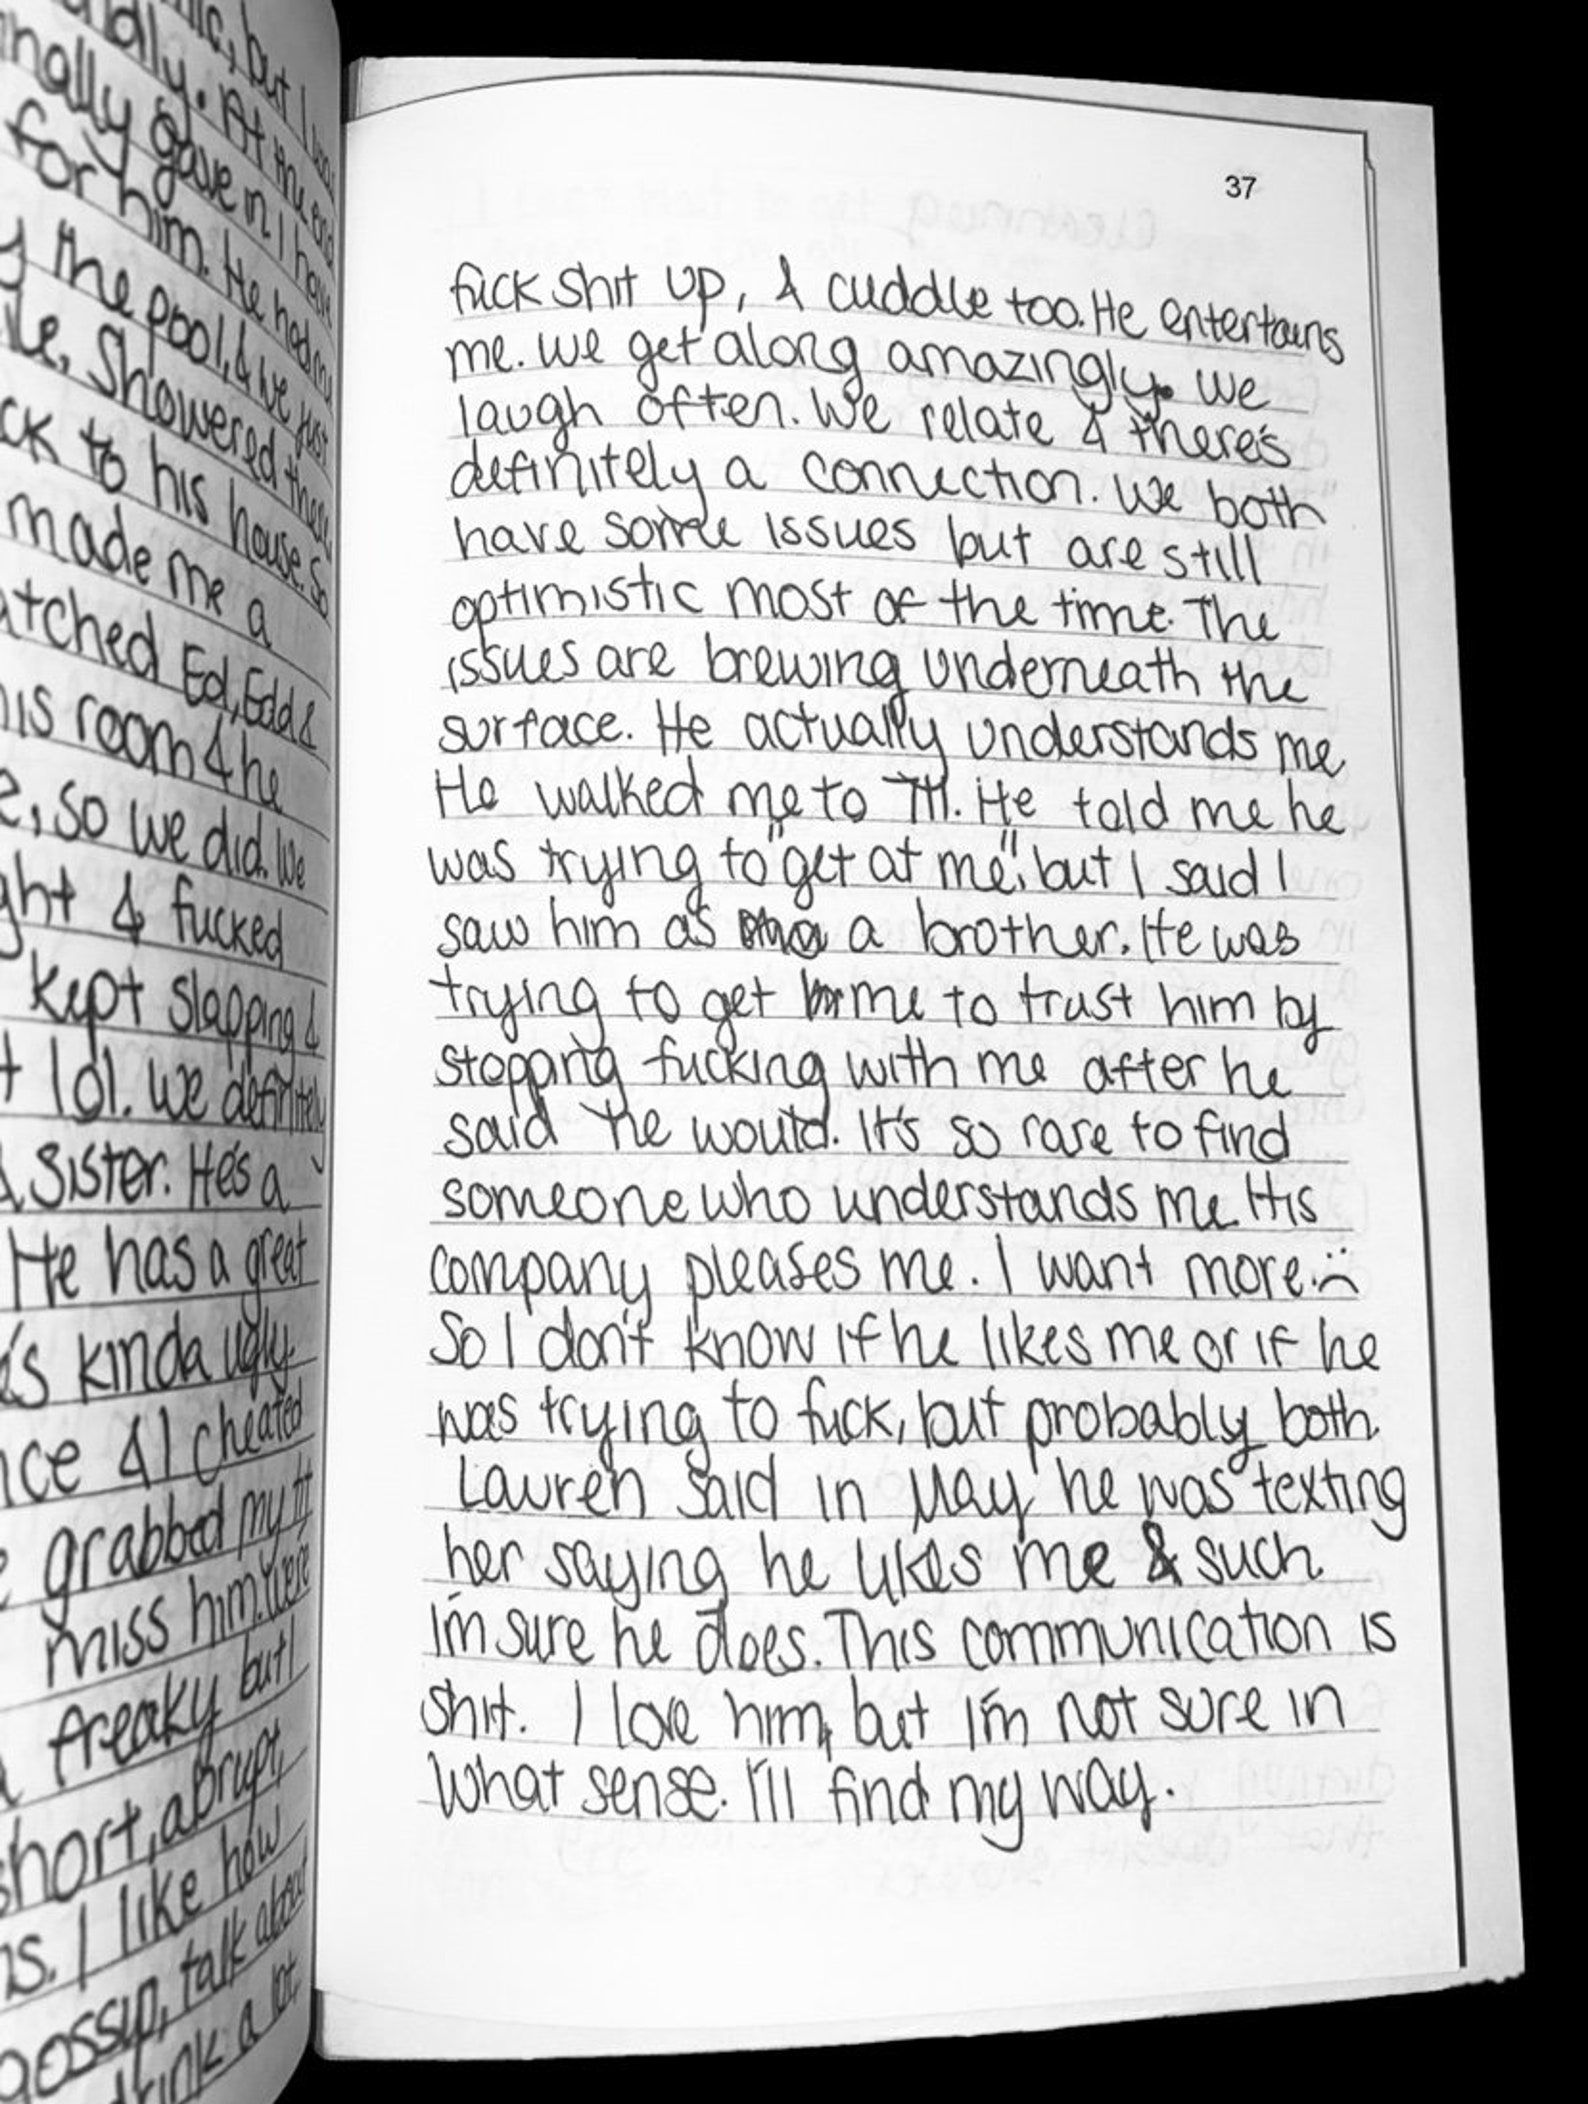 but I
ndly. At the end
nally gave in I have
for him. He had my
y the pool, & we just
Showered there
ck to his house. So
made me a
atched Ed, Edd &
his room & he
e, so we did. We
ght & fucked
kept slapping &
t lol. We definitely
Sister. He's a
He has a great
's kinda ugly.
nce & I cheated
grabbed my tit
miss him. We're
freaky but I
short, abrupt,
ns. I like how
gossip, talk about
drink a lot.
37
fuck shit up, & cuddle too. He entertains
me. We get along amazingly. We
laugh often. We relate & there's
definitely a connection. We both
have some issues but are still
optimistic most of the time. The
issues are brewing underneath the
surface. He actually understands me
He walked me to 711. He told me he
was trying to "get at me", but I said I
saw him as a brother. He was
trying to get me to trust him by
stopping fucking with me after he
said he would. It's so rare to find
someone who understands me. His
company pleases me. I want more :(
So I don't know if he likes me or if he
was trying to fuck, but probably both.
Lauren said in May he was texting
her saying he likes me & such.
I'm sure he does. This communication is
shit. I love him, but I'm not sure in
what sense. I'll find my way.